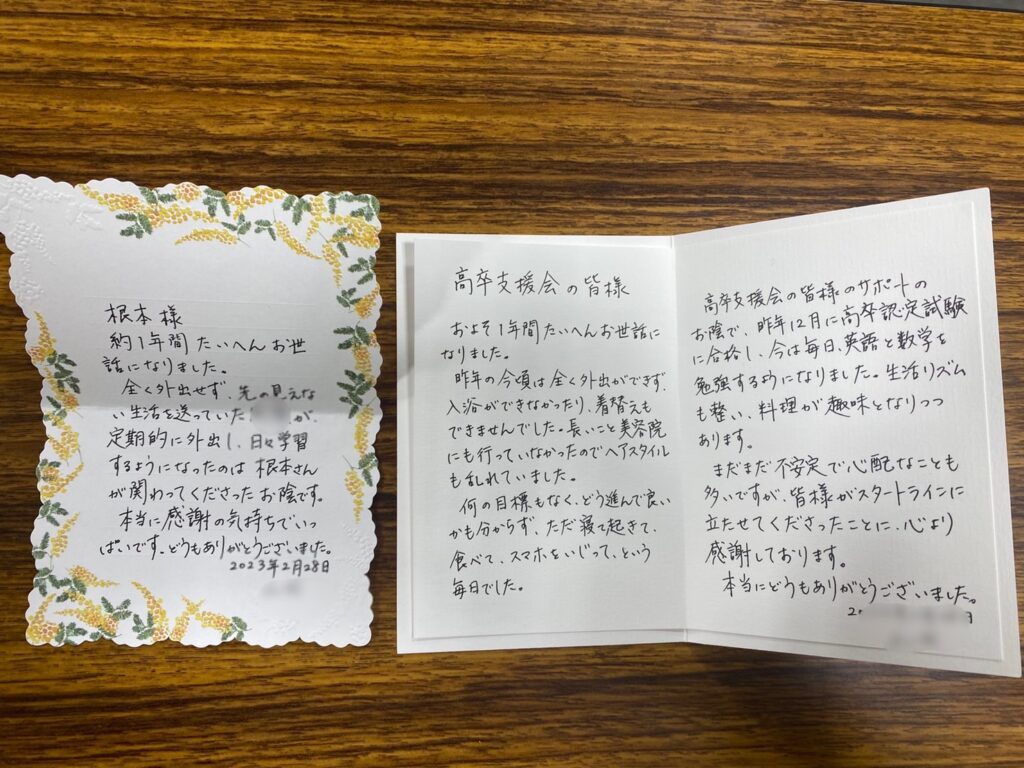 根本様
約1年間たいへんお世
話になりました。
全く外出せず、先の見えな
い生活を送っていた が、
定期的に外出し、日々学習
するようになったのは根本さん
が関わってくださったお陰です。
本当に感謝の気持ちでいっ
ぱいです。どうもありがとうございました。
2023年2月28日
高卒支援会の皆様
およそ1年間たいへんお世話に
なりました。
昨年の今頃は全く外出ができず、
入浴ができなかったり、着替えも
できませんでした。長いこと美容院
にも行っていなかったのでヘアスタイル
も乱れていました。
何の目標もなく、どう進んで良い
かも分からず、ただ寝て起きて、
食べて、スマホをいじって、という
毎日でした。
高卒支援会の皆様のサポートの
お陰で、昨年12月に高卒認定試験
に合格し、今は毎日、英語と数学を
勉強するようになりました。生活リズム
も整い、料理が趣味となりつつ
あります。
まだまだ不安定で心配なことも
多いですが、皆様がスタートラインに
立たせてくださったことに、心より
感謝しております。
本当にどうもありがとうございました。